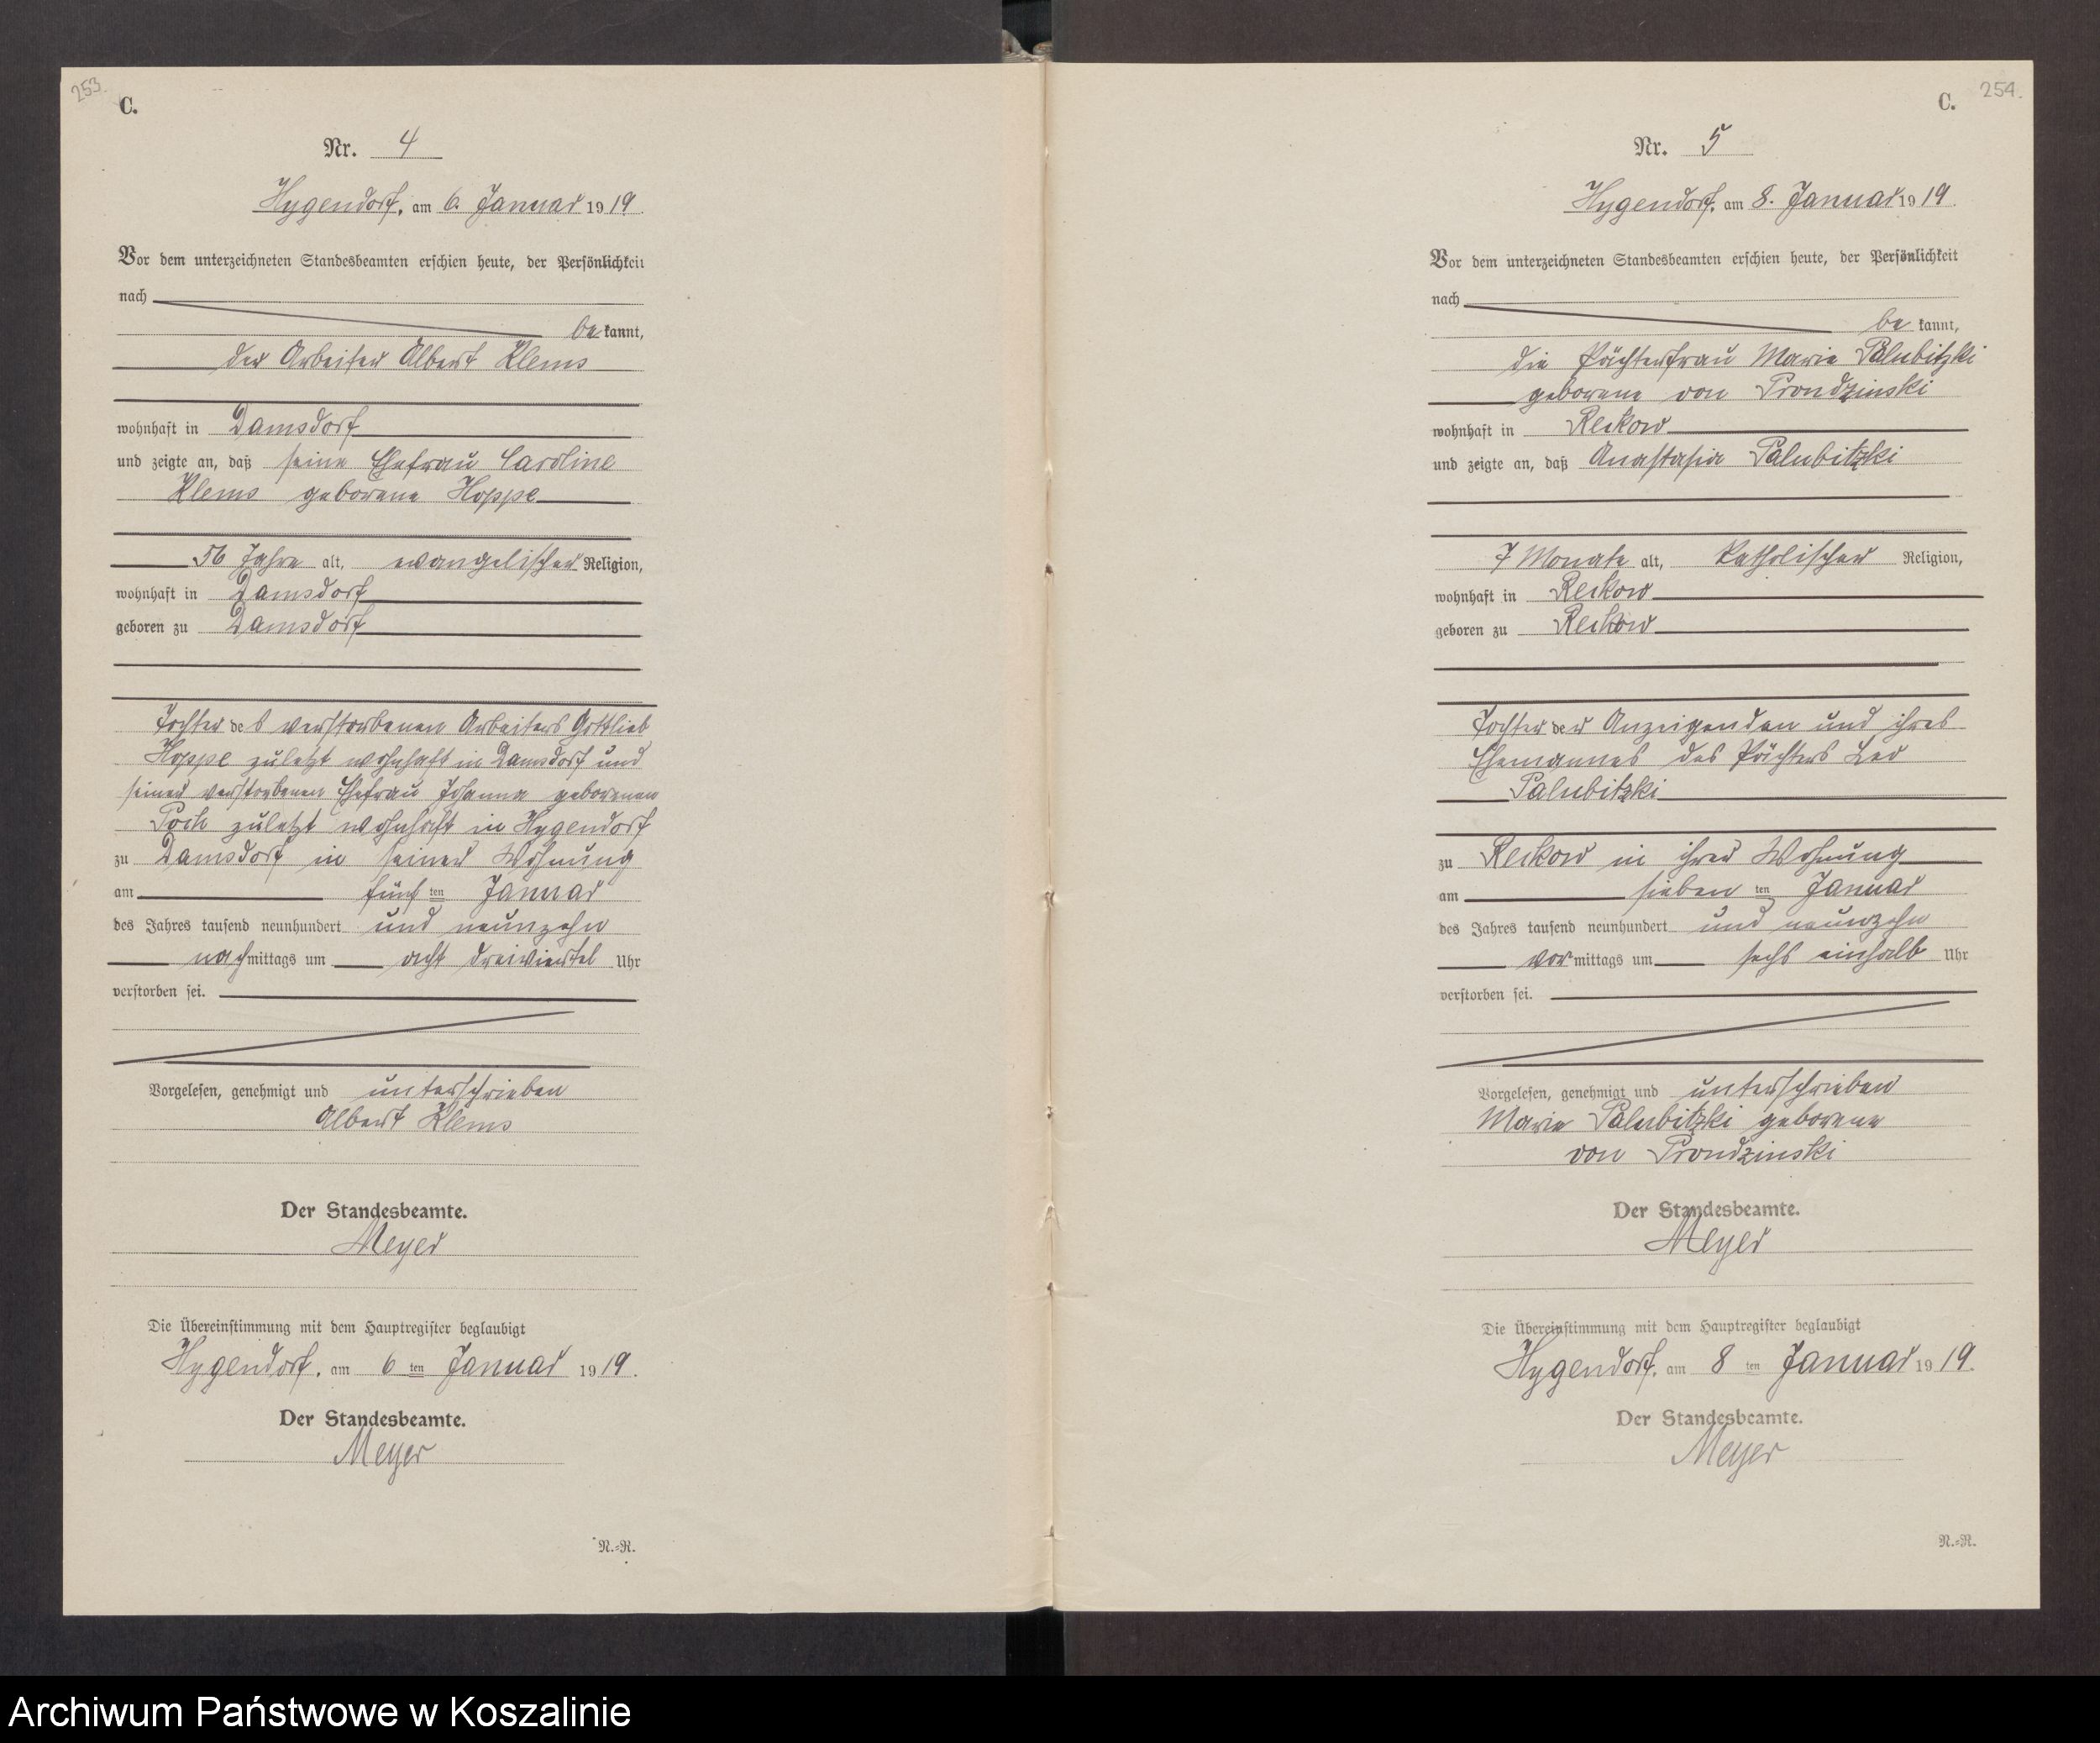 253.
C.
Nr. 4
Hygendorf, am 6. Januar 1919.
Vor dem unterzeichneten Standesbeamten erschien heute, der Persönlichkeit
nach
bekannt,
der Arbeiter Albert Klems
wohnhaft in Damsdorf
und zeigte an, daß seine Ehefrau Caroline
Klems geborene Hoppe
56 Jahre alt, evangelischer Religion,
wohnhaft in Damsdorf
geboren zu Damsdorf
Tochter des verstorbenen Arbeiters Gottlieb
Hoppe zuletzt wohnhaft in Damsdorf und
seiner verstorbenen Ehefrau Johanna geborenen
zuletzt wohnhaft in Hygendorf
zu Damsdorf in seiner Wohnung
am fünften Januar
des Jahres tausend neunhundert und neunzehn
nachmittags um acht dreiviertel Uhr
verstorben sei.
Vorgelesen, genehmigt und unterschrieben
Albert Klems
Der Standesbeamte.
Meyer
Die Übereinstimmung mit dem Hauptregister beglaubigt
Hygendorf, am 6ten Januar 1919.
Der Standesbeamte.
Meyer
N.=R.
254.
C.
Nr. 5
Hygendorf, am 8. Januar 1919.
Vor dem unterzeichneten Standesbeamten erschien heute, der Persönlichkeit
nach
bekannt,
die Pächterfrau Marie Palubitzki
geborene von Prondzinski
wohnhaft in Reckow
und zeigte an, daß Anastasia Palubitzki
7 Monate alt, katholischer Religion,
wohnhaft in Reckow
geboren zu Reckow
Tochter der Anzeigenden und ihres
Ehemannes des Pächters Leo
Palubitzki
zu Reckow in ihrer Wohnung
am siebenten Januar
des Jahres tausend neunhundert und neunzehn
vormittags um sechs einhalb Uhr
verstorben sei.
Vorgelesen, genehmigt und unterschrieben
Marie Palubitzki geborene
von Prondzinski
Der Standesbeamte.
Meyer
Die Übereinstimmung mit dem Hauptregister beglaubigt
Hygendorf, am 8ten Januar 1919.
Der Standesbeamte.
Meyer
N.=R.
Archiwum Państwowe w Koszalinie